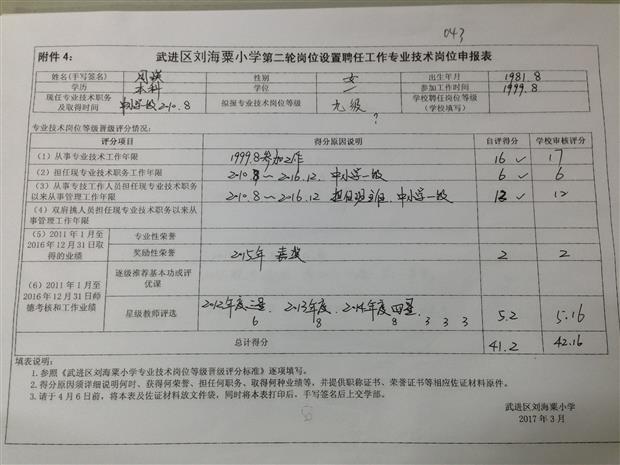 043
附件4：
武进区刘海粟小学第二轮岗位设置聘任工作专业技术岗位申报表
姓名(手写签名) 性别 女 出生年月 1981.8
学历 本科 学位 参加工作时间 1999.8
现任专业技术职务及取得时间 中小学一级2010.8 拟报专业技术岗位等级 九级 学校聘任岗位等级(学校填写)
?
专业技术岗位等级晋级评分情况：
评分项目 得分原因说明 自评得分 学校审核评分
(1) 从事专业技术工作年限 1999.8参加工作 16 ✓ 17
(2) 担任现专业技术职务工作年限 2010.8～2016.12. 中小学一级 6 ✓ 6
(3) 从事专技工作人员担任现专业技术职务以来从事管理工作年限 2010.8～2016.12 担任班主任. 中小学一级 12 ✓ 12
(4) 双肩挑人员担任现专业技术职务以来从事管理工作年限
(5) 2011年1月至2016年12月31日取得的业绩 专业性荣誉
奖励性荣誉 2015年 嘉奖 2 2
(6) 2011年1月至2016年12月31日师德考核和工作业绩 逐级推荐基本功或评优课
星级教师评选 2012年度三星、2013年度、2014年度四星 5.2 5.16
6 8 8 3 3 3
总计得分 41.2 42.16
填表说明：
1.参照《武进区刘海粟小学专业技术岗位等级晋级评分标准》逐项填写。
2.得分原因须详细说明何时、获得何荣誉、担任何职务、取得何种业绩等，并提供职称证书、荣誉证书等相应佐证材料原件。
3.请于4月6日前，将本表及佐证材料放文件袋，同时将本表打印后，手写签名后上交学部。
武进区刘海粟小学
2017年3月